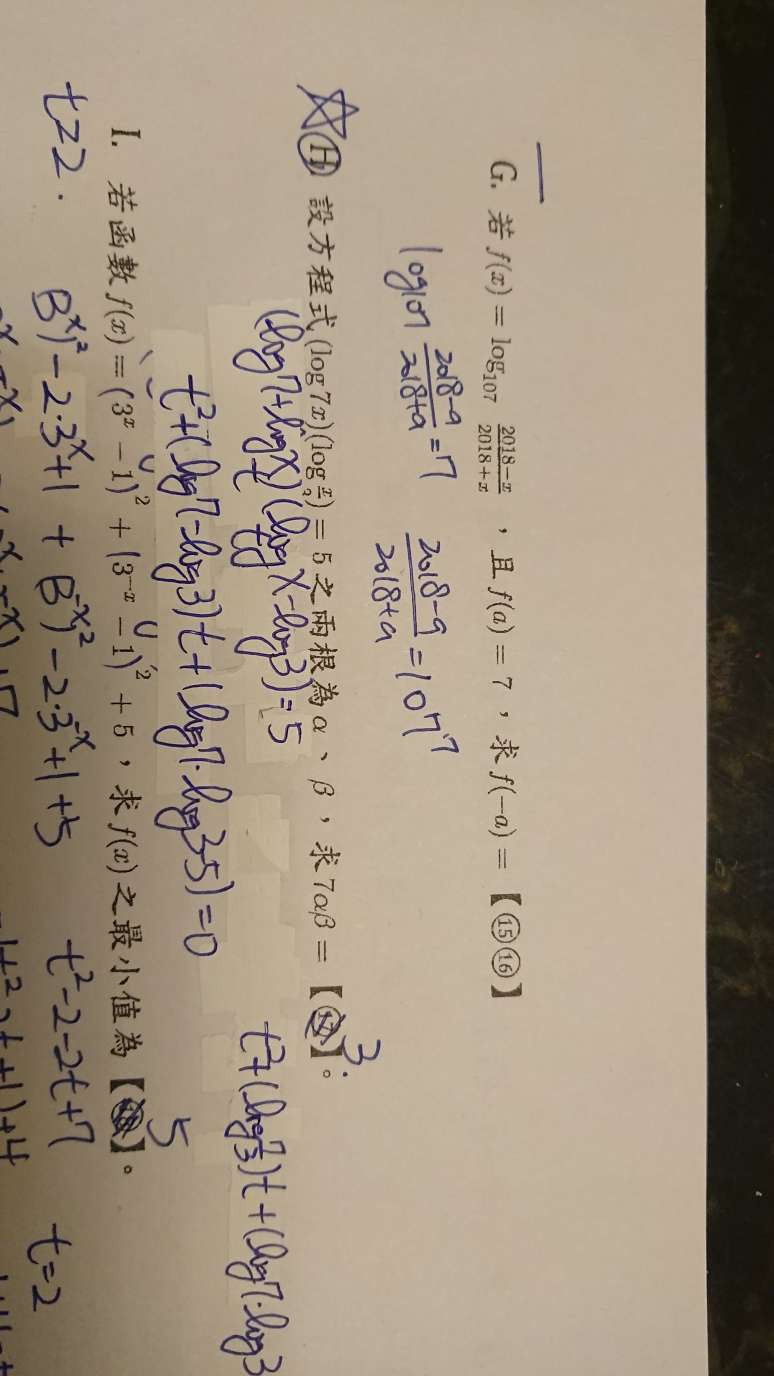 G. 若 f(x) = log₁₀₇ (2018−x)/(2018+x) ，且 f(a) = 7 ，求 f(−a) = 【⑮⑯】
log107 (2018−a)/(2018+a) = 7
(2018−a)/(2018+a) = 107⁷
☆Ⓗ 設方程式 (log 7x)(log x/3) = 5 之兩根為 α、β ，求 7αβ = 【】。
3
(log7+logx)(logx−log3)=5
t
t
t²+(log 7/3)t+(log7·log3
t²+(log7−log3)t+(log7·log3−5)=0
I. 若函數 f(x) = (3ˣ − 1)² + (3⁻ˣ − 1)² + 5 ，求 f(x) 之最小值為【】。
5
t≥2.
(3ˣ)²−2·3ˣ+1 + (3⁻ˣ)²−2·3⁻ˣ+1+5
t²−2−2t+7
t=2